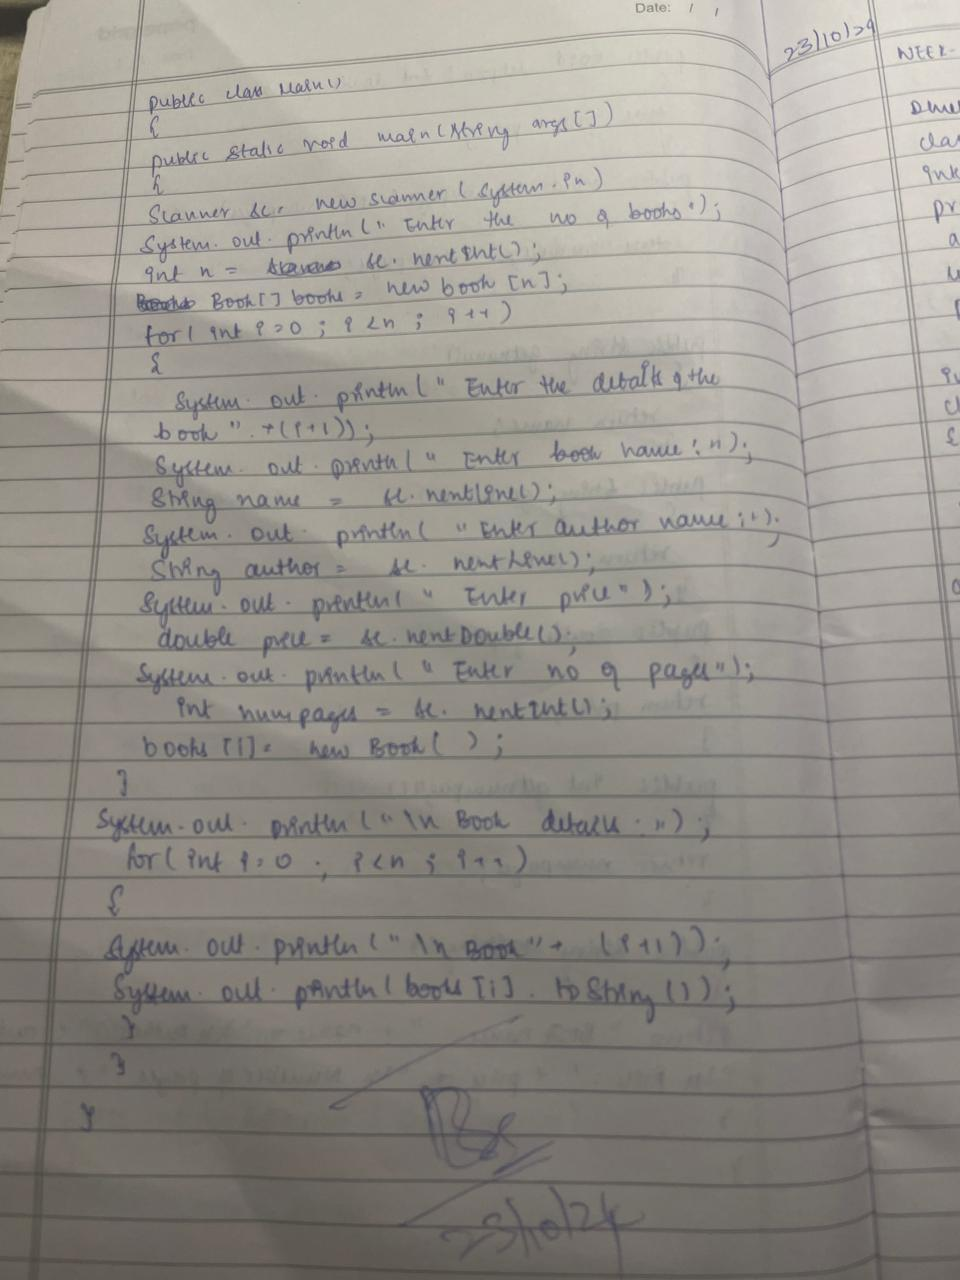 Date: / /
23/10/24
WEEK-
public class Main()
{
public static void main(String args[])
{
Scanner sc = new scanner (System.in)
System.out.println(" Enter the no of books");
int n = sc.nextInt();
Book[] books = new book [n];
for( int i=0 ; i<n ; i++)
{
System.out.println(" Enter the details of the
book ". +(i+1));
System.out.println(" Enter book name: ");
String name = sc.nextLine();
System.out.println( " Enter author name: ");
String author = sc. nextLine();
System.out.println( " Enter price");
double price = sc.nextDouble();
System.out.println( " Enter no of pages");
int numpages = sc. nextInt();
books [i]= new Book( );
}
System.out.println(" \n Book details: ");
for( int i=0 ; i<n ; i++)
{
System.out.println(" \n Book"+ (i+1));
System.out.println( books [i]. toString());
}
}
}
23/10/24